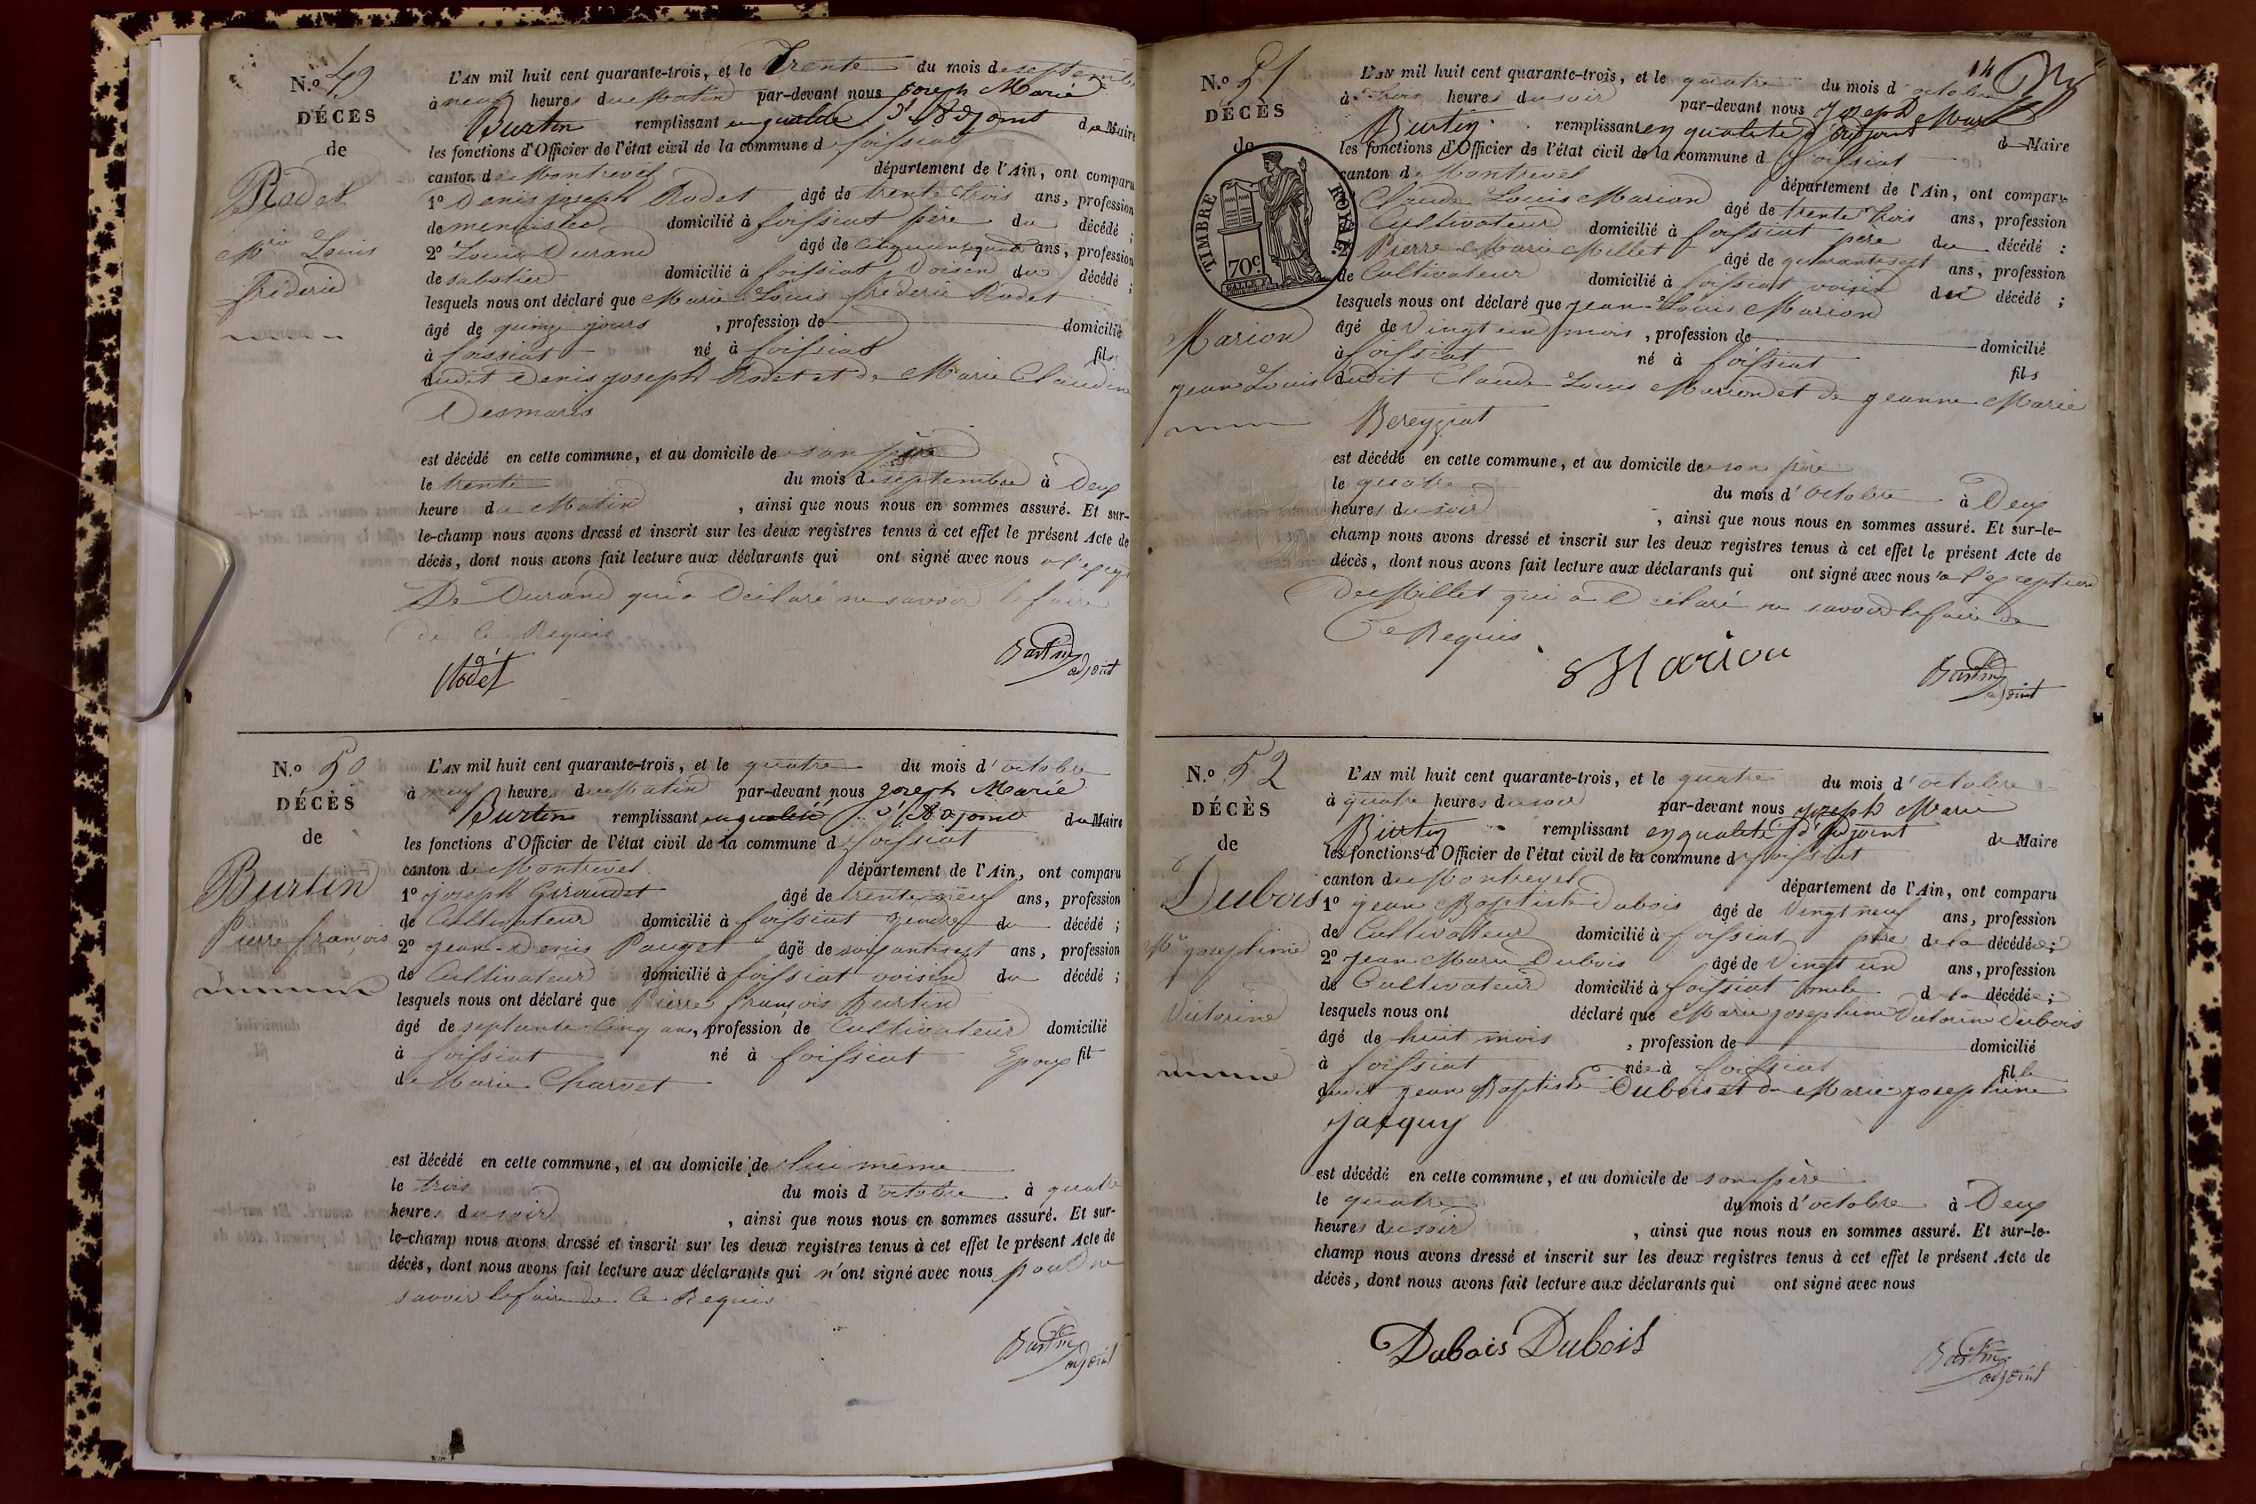 N.o 49
DÉCÈS
de
Rodet
Mrie Louis
fréderic
L'AN mil huit cent quarante-trois, et le Trente du mois de septembre
à neuf heures du Matin par-devant nous joseph Marie
Burtin remplissant en qualité d'Adjoint de Maire
les fonctions d'Officier de l'état civil de la commune de foissiat
canton de Montrevel département de l'Ain, ont comparu
1o Denis joseph Rodet âgé de trente trois ans, profession
de menuisier domicilié à foissiat père du décédé ;
2o Louis Durand âgé de ans, profession
de sabotier domicilié à foissiat voisin du décédé ;
lesquels nous ont déclaré que Marie Louis fréderic Rodet
âgé de quinze jours , profession de domicilié
à foissiat né à foissiat fils
dudit Denis joseph Rodet et de Marie Claudine
Desmaris
est décédé en cette commune, et au domicile de son père
le trente du mois de septembre à Deux
heure du Matin , ainsi que nous nous en sommes assuré. Et sur-
le-champ nous avons dressé et inscrit sur les deux registres tenus à cet effet le présent Acte de
décès, dont nous avons fait lecture aux déclarants qui ont signé avec nous
De Durand qui a Déclaré ne savoir le faire
de ce Requis
Rodet
Burtin
adjoint
N.o 50
DÉCÈS
de
Burtin
Pierre françois
L'AN mil huit cent quarante-trois, et le quatre du mois d'octobre
à neuf heures du Matin par-devant nous joseph Marie
Burtin remplissant en qualité d'Adjoint de Maire
les fonctions d'Officier de l'état civil de la commune de foissiat
canton de Montrevel département de l'Ain, ont comparu
1o joseph Giroudet âgé de trente neuf ans, profession
de Cultivateur domicilié à foissiat gendre du décédé ;
2o jean-Denis Pauget âgé de soixante sept ans, profession
de Cultivateur domicilié à foissiat voisin du décédé ;
lesquels nous ont déclaré que Pierre françois Burtin
âgé de septante Cinq ans, profession de Cultivateur domicilié
à foissiat né à foissiat Epoux fil
de Marie Charvet
est décédé en cette commune, et au domicile de lui même
le trois du mois d'octobre à quatre
heures du soir , ainsi que nous nous en sommes assuré. Et sur-
le-champ nous avons dressé et inscrit sur les deux registres tenus à cet effet le présent Acte de
décès, dont nous avons fait lecture aux déclarants qui n'ont signé avec nous pour ne
savoir le faire de ce Requis
Burtin
adjoint
14
N.o 51
DÉCÈS
de
TIMBRE ROYAL
70c.
Marion
jean Louis
L'AN mil huit cent quarante-trois, et le quatre du mois d'octobre
à trois heures du soir par-devant nous joseph Marie
Burtin remplissant en qualité d'adjoint de Maire
les fonctions d'Officier de l'état civil de la commune de foissiat
canton de Montrevel département de l'Ain, ont comparu
Claude Louis Marion âgé de trente trois ans, profession
Cultivateur domicilié à foissiat père du décédé ;
Pierre Marie Millet âgé de quarante sept ans, profession
de Cultivateur domicilié à foissiat voisin du décédé ;
lesquels nous ont déclaré que jean-Louis Marion
âgé de vingt un mois , profession de domicilié
à foissiat né à foissiat fils
dudit Claude Louis Marion et de jeanne Marie
Bereyziat
est décédé en cette commune, et au domicile de son père
le quatre du mois d'octobre à Deux
heures du soir , ainsi que nous nous en sommes assuré. Et sur-le-
champ nous avons dressé et inscrit sur les deux registres tenus à cet effet le présent Acte de
décès, dont nous avons fait lecture aux déclarants qui ont signé avec nous a l'exception
de Millet qui a Déclaré ne savoir le faire de
Ce Requis
Marion
Burtin
adjoint
N.o 52
DÉCÈS
de
Dubois
Mie josephine
Victorine
L'AN mil huit cent quarante-trois, et le quatre du mois d'octobre
à quatre heures du soir par-devant nous joseph Marie
Burtin remplissant en qualité d'adjoint de Maire
les fonctions d'Officier de l'état civil de la commune de foissiat
canton de Montrevel département de l'Ain, ont comparu
1o jean Baptiste Dubois âgé de vingt neuf ans, profession
de Cultivateur domicilié à foissiat père de la décédée ;
2o jean Marie Dubois âgé de vingt un ans, profession
de Cultivateur domicilié à foissiat oncle de la décédée ;
lesquels nous ont déclaré que Marie josephine Victorine Dubois
âgé de huit mois , profession de domicilié
à foissiat née à foissiat fille
dudit jean Baptiste Dubois et de Marie josephine
jacquy
est décédé en cette commune, et au domicile de son père
le quatre du mois d'octobre à Deux
heures du soir , ainsi que nous nous en sommes assuré. Et sur-le-
champ nous avons dressé et inscrit sur les deux registres tenus à cet effet le présent Acte de
décès, dont nous avons fait lecture aux déclarants qui ont signé avec nous
Dubois Dubois
Burtin
adjoint